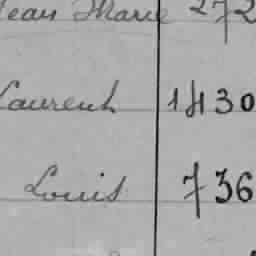 Jean Marie 272
Laurent 1430
Louis 736